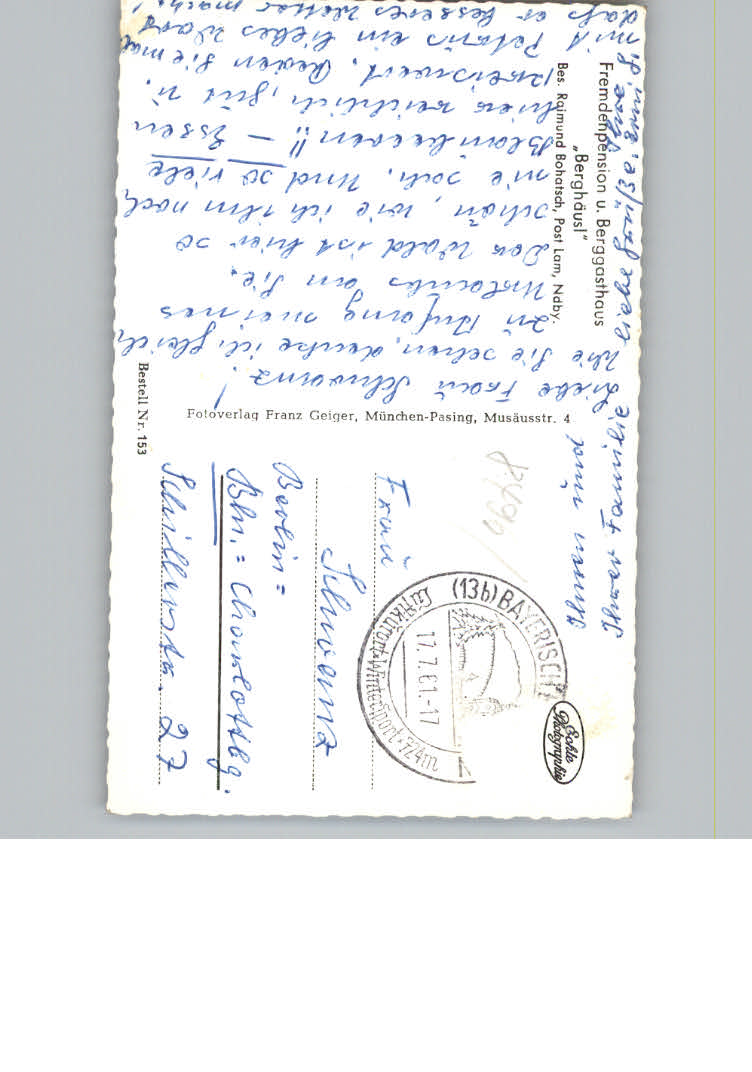 Fremdenpension u. Berggasthaus
„Berghäusl"
Bes. Raimund Bohatsch, Post Lam, Ndby.
Liebe Frau Schwanz!
Wie Sie sehen, denke ich gleich
zu Anfang meines
Urlaubs an Sie.
Der Wald ist hier so
schön, wie ich ihn noch
nie sah. Und so viele
Blaubeeren!! – Essen
hier reichlich, gut u.
preiswert. Reden Sie mal
mit Petrus ein liebes Wort
daß er besseres Wetter macht!
Ihnen und
Ihrer Familie liebe Grüße
Ihre
Fotoverlag Franz Geiger, München-Pasing, Musäusstr. 4
Bestell Nr. 153
Echte
Photographie
(13b) BAYERISCH
17.7.61.-17
Luftkurort·Wintersport·724m
Frau
Schwanz
Berlin =
Bln. = Charlottbg.
Schillerstr. 27